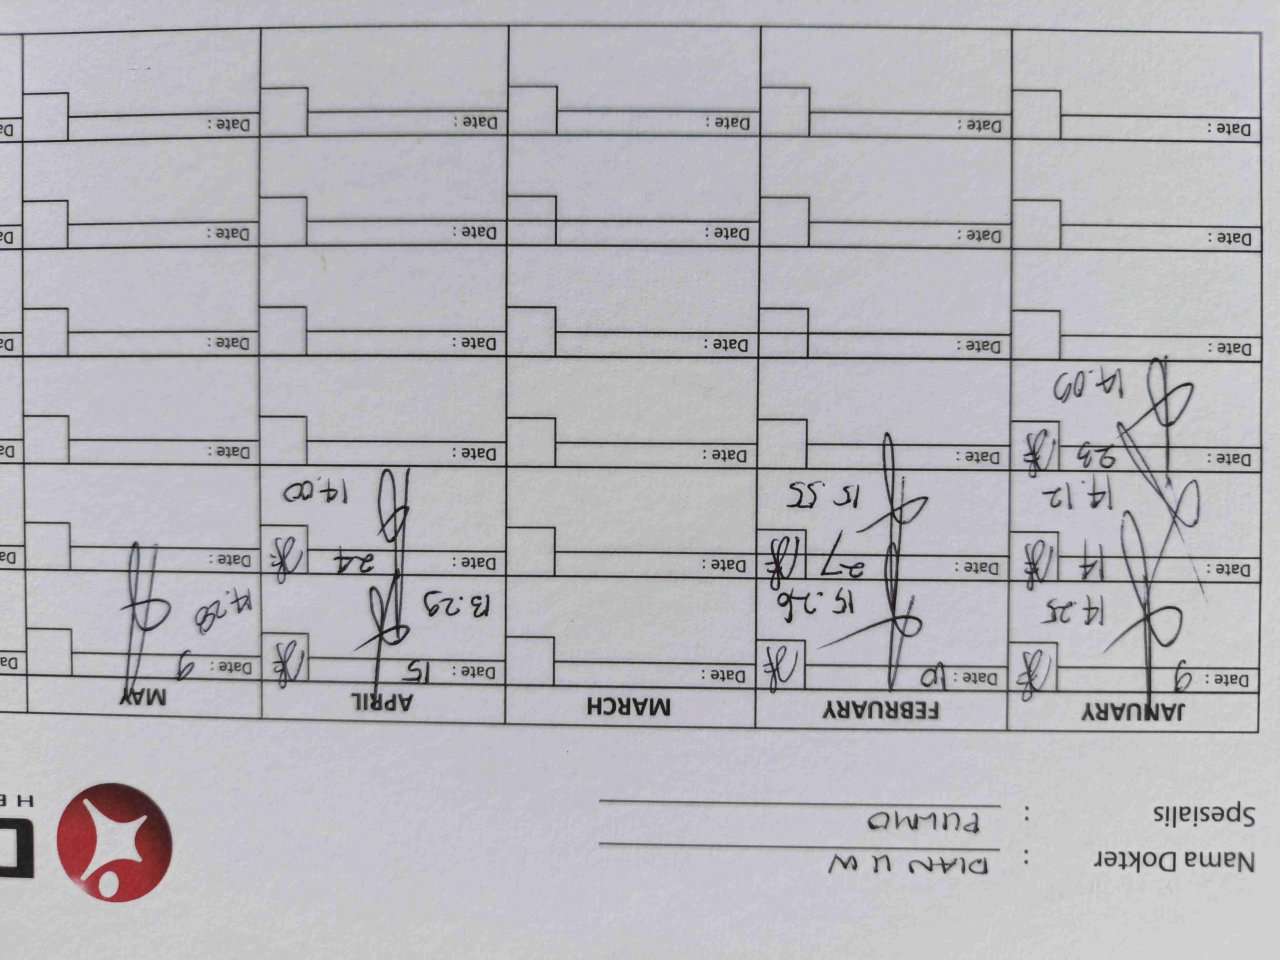 Nama Dokter : DIAN U W
Spesialis : PULMO
JANUARY FEBRUARY MARCH APRIL MAY
Date : 9 Date : 10 Date : Date : 15 Date : 9
14.25 15.26 13.29 14.28
Date : 14 Date : 27 Date : Date : 24 Date :
14.12 15.55 14.00
Date : 23 Date : Date : Date : Date :
Date : Date : Date : Date : Date :
Date : Date : Date : Date : Date :
Date : Date : Date : Date : Date :